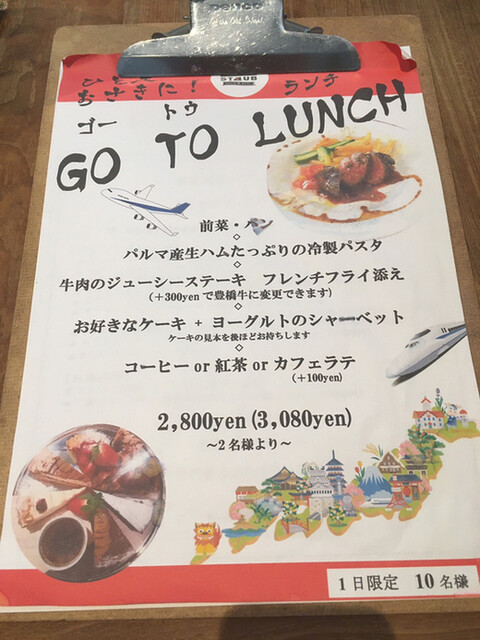 おさきに！
STAUB
ランチ
ゴー トゥ
GO TO LUNCH
前菜・パン
◇
パルマ産生ハムたっぷりの冷製パスタ
◇
牛肉のジューシーステーキ フレンチフライ添え
(＋300yenで豊橋牛に変更できます)
◇
お好きなケーキ + ヨーグルトのシャーベット
ケーキの見本を後ほどお持ちします
◇
コーヒー or 紅茶 or カフェラテ
(＋100yen)
2,800yen (3,080yen)
～2名様より～
1日限定 10名様